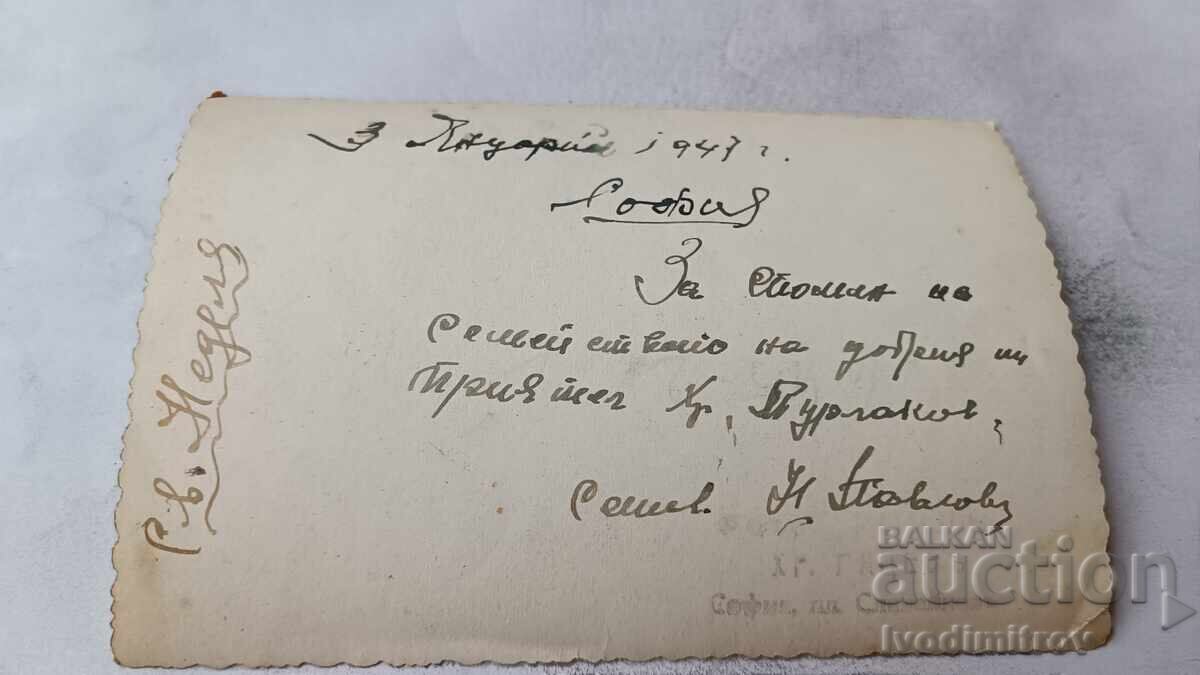 3 Януарий 1947 г.
София
За спомен на
семейството на добрия ни
приятел Хр. Турлаков,
семейс. Н Павлови
Св. Неделя
Хр.
София, пл.
BALKAN
auction
Ivodimitrov